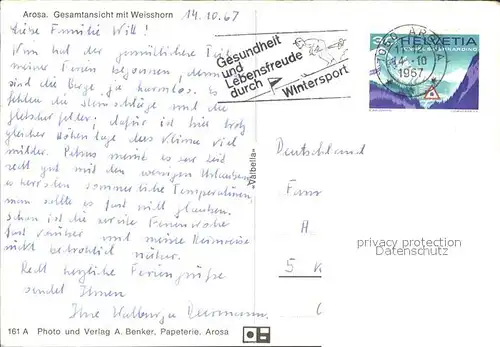 Arosa. Gesamtansicht mit Weisshorn 14.10.67
Liebe Familie Will!
Nun hat der gemütliche Teil
meiner Ferien begonnen, denn
sind die Berge ja harmlos. Es
fehlen die Steinschläge und die
Gletscherfelder; dafür ist hier trotz
gleicher Höhenlage das Klima viel
milder. Petrus meint es zur Zeit
recht gut mit den wenigen Urlaubern,
es herrschen sommerliche Temperaturen,
man sollte es fast nicht glauben.
Schon ist die erste Ferienwoche
fast vorüber und meine Heimreise
rückt bedrohlich näher.
Recht herzliche Feriengrüße
sendet Ihnen
Ihre Walburga
161 A Photo und Verlag A. Benker, Papeterie, Arosa
"Valbella"
Gesundheit
und
Lebensfreude
durch
Wintersport
7050 AROSA
14.-10
1967
HELVETIA
Deutschland
Fam
A
5 K
privacy protection
Datenschutz